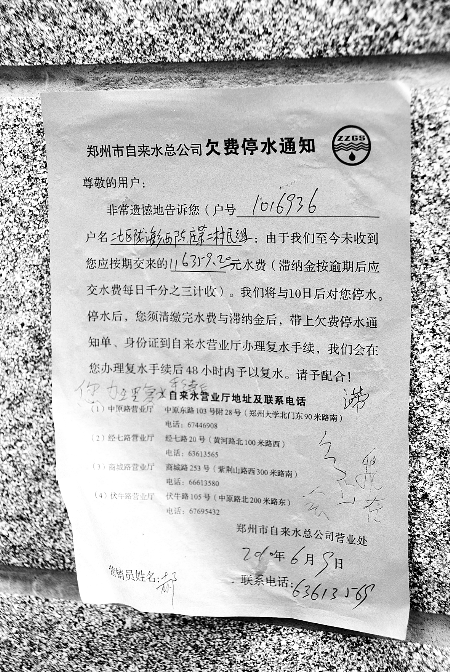 郑州市自来水总公司欠费停水通知
ZZGS
尊敬的用户：
非常遗憾地告诉您（户号 1016936
户名 ；由于我们至今未收到
您应按期交来的116359.20元水费（滞纳金按逾期后应
交水费每日千分之三计收）。我们将与10日后对您停水。
停水后，您须清缴完水费与滞纳金后，带上欠费停水通
知单、身份证到自来水营业厅办理复水手续，我们会在
您办理复水手续后48小时内予以复水。请予配合！
自来水营业厅地址及联系电话
（1）中原路营业厅 中原东路103号附28号（郑州大学北门东90米路南）
电话：67446908
（2）经七路营业厅 经七路20号（黄河路北100米路西）
电话：63613565
（3）商城路营业厅 商城路253号（紫荆山路西300米路南）
电话：66613580
（4）伏牛路营业厅 伏牛路105号（中原路北200米路东）
电话：67695432
郑州市自来水总公司营业处
2010年6月5日
营销员姓名：郝
联系电话：63613565